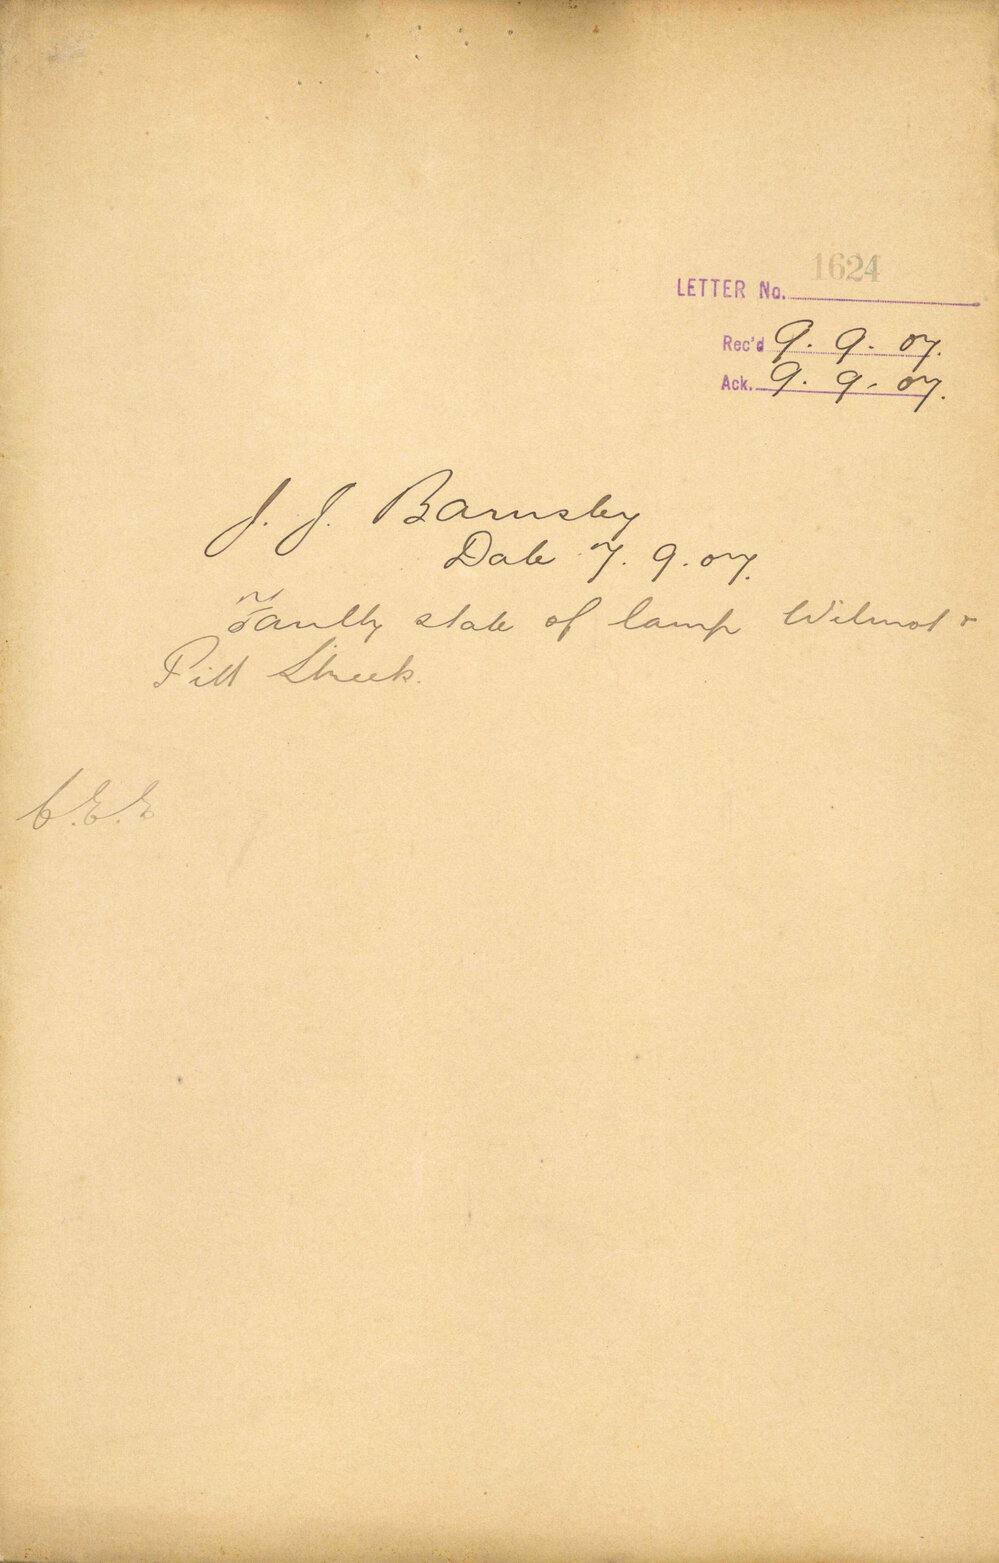 1624
LETTER No.
Rec'd 9. 9. 07.
Ack. 9. 9. 07.
J. J. Barnsley
Date 7. 9. 07.
Faulty state of lamp Wilmot &
Pitt Streets.
C.E.E